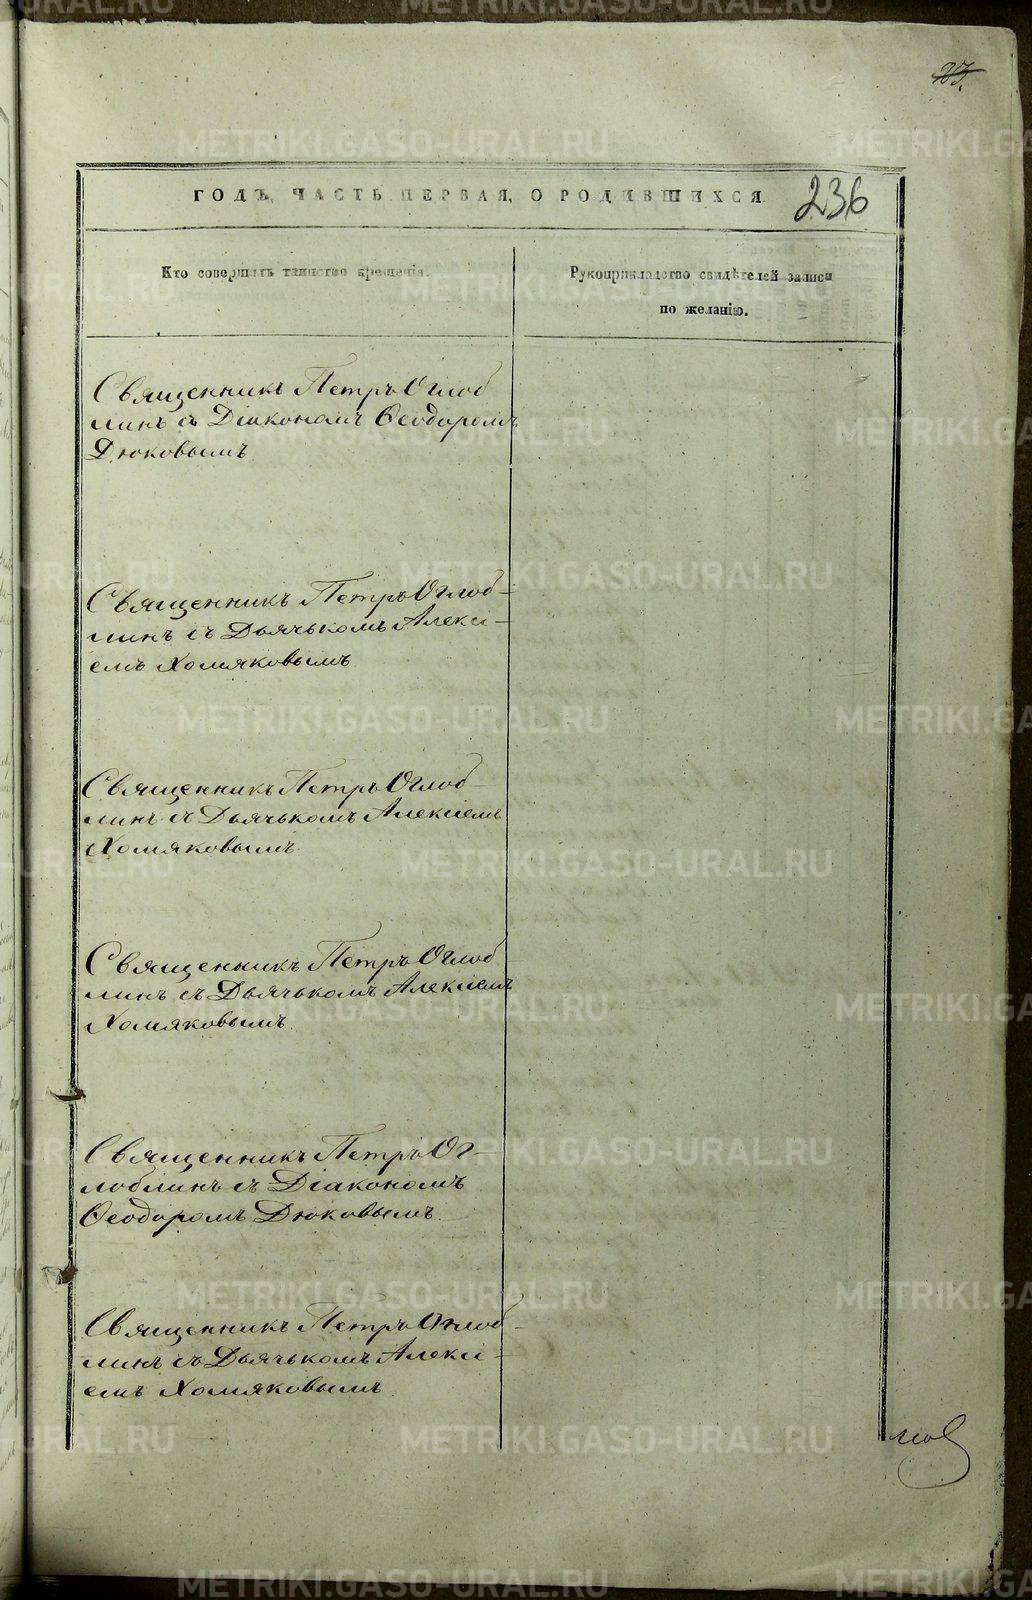 ГОДЪ, ЧАСТЬ ПЕРВАЯ, О РОДИВШИХСЯ
236
Кто совершалъ таинство крещенія.
Рукоприкладство свидѣтелей записи
по желанію.
Священникъ Петръ Оглоб
линъ съ Діакономъ Ѳеодоромъ
Дюковымъ
Священникъ Петръ Оглоб-
линъ съ Дьячькомъ Алексі-
емъ Хомяковымъ
Священникъ Петръ Оглоб-
линъ съ Дьячькомъ Алексіемъ
Хомяковымъ
Священникъ Петръ Оглоб
линъ съ Дьячькомъ Алексіемъ
Хомяковымъ
Священникъ Петръ Ог-
лоблинъ съ Діакономъ
Ѳеодоромъ Дюковымъ
Священникъ Петръ Оглоб-
линъ съ Дьячькомъ Алексі-
емъ Хомяковымъ
METRIKI.GASO-URAL.RU